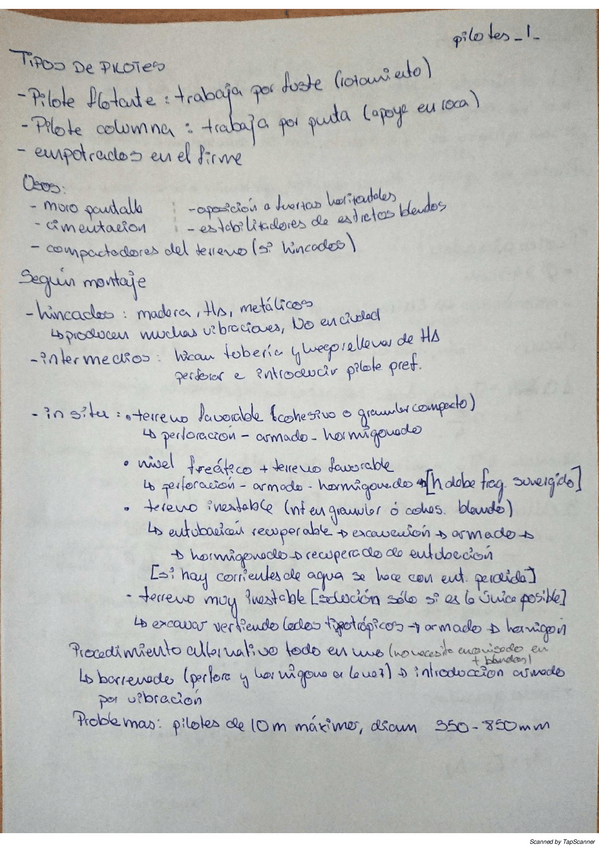 pilotes_1_
TIPOS DE PILOTES
- Pilote flotante : trabaja por fuste (rozamiento)
- Pilote columna : trabaja por punta (apoye en roca)
- empotrados en el firme
Usos:
- muro pantalla - oposición a fuerzas horizontales
- cimentación - estabilitadores de estratos blandos
- compactadores del terreno (si hincados)
Según montaje
- hincados : madera, HA, metálicos
↳ producen muchas vibraciones, NO en ciudad
- intermedios : hincan tubería y luego rellenar de HA
perforar e introducir pilote pref.
- in situ : • terreno favorable (cohesivo o granular compacto)
↳ perforación - armado - hormigonado
• nivel freático + terreno favorable
↳ perforación - armado - hormigonado → [h debe frag. sumergido]
• terreno inestable (nf en granular ó cohes. blando)
↳ entubación recuperable → excavación → armado →
→ hormigonado → recuperado de entubación
[si hay corrientes de agua se hace con ent. perdida]
• terreno muy inestable [solución sólo si es la única posible]
↳ excavar vertiendo lodos tixotrópicos → armado → hormigón
Procedimiento alternativo todo en uno (no necesita en
+ blandos)
↳ barrenado (perfora y hormigona a la vez) → introducción armado
por vibración
Problemas: pilotes de 10 m máximo, diam 350-850mm
Scanned by TapScanner